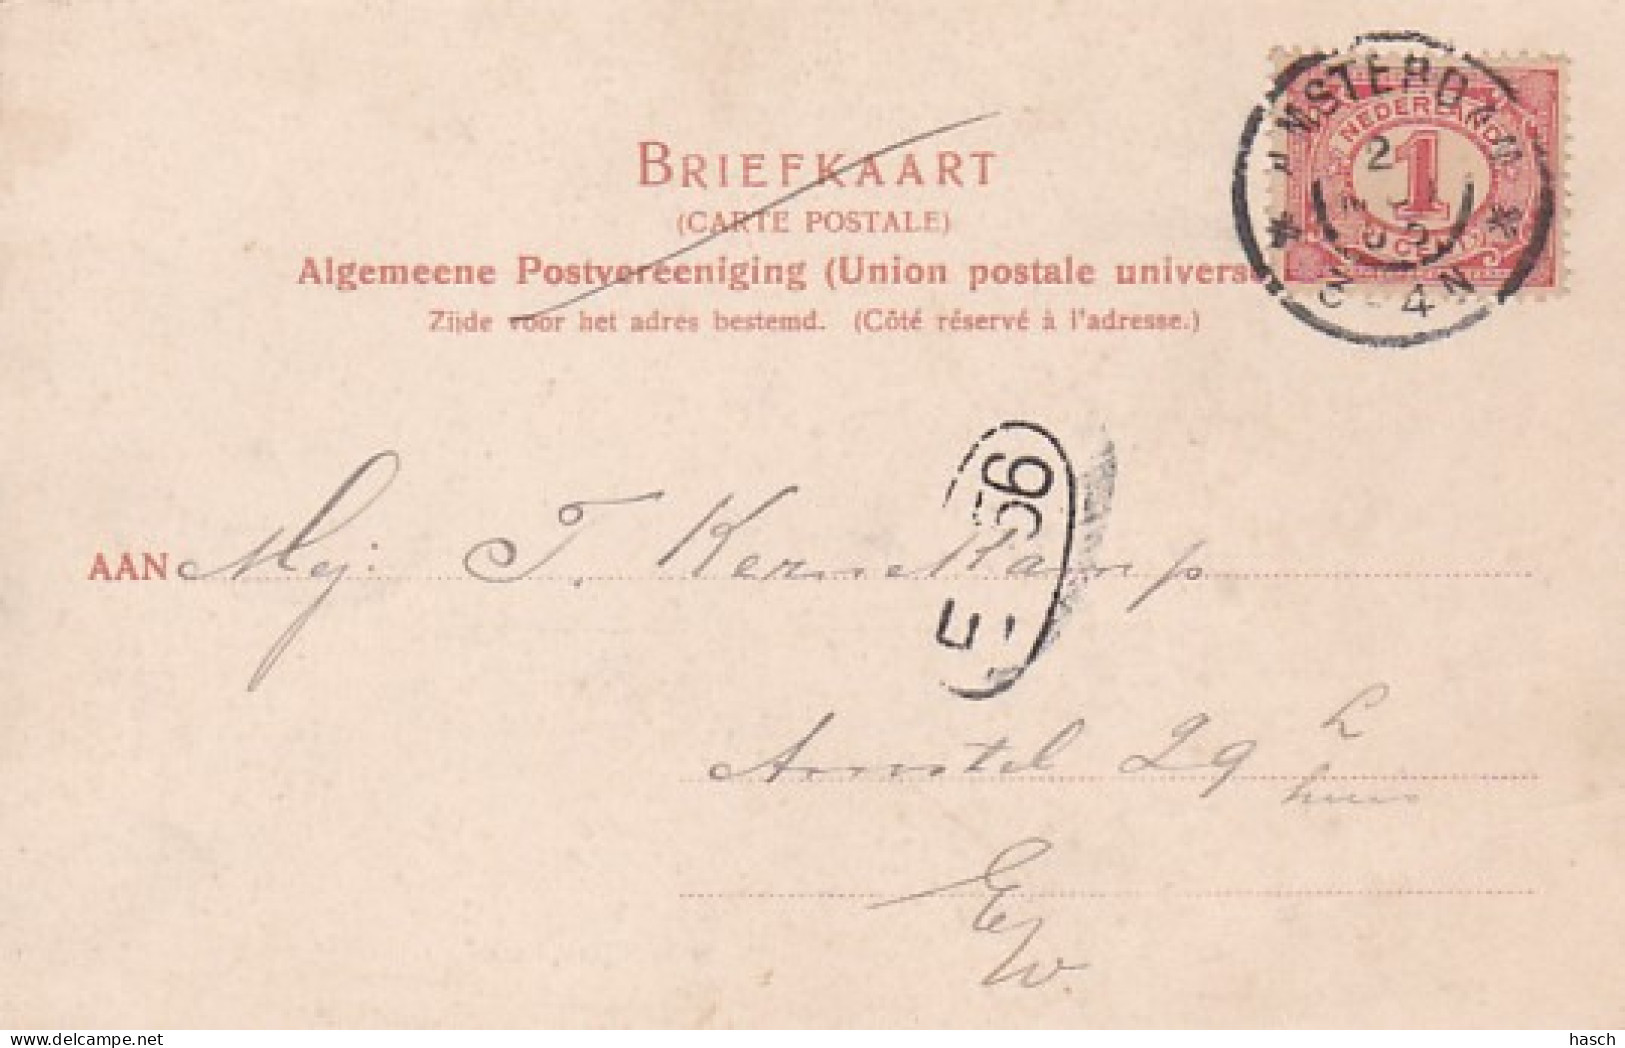 BRIEFKAART
(CARTE POSTALE)
Algemeene Postvereeniging (Union postale univers
Zijde voor het adres bestemd. (Côté réservé à l'adresse.)
AMSTERDAM
2
3-4N
NEDERLAND
1
CENT
56
E
AAN Mej. T. Kernekamp
Amstel 29 h
huis
E/W.
www.delcampe.net
hasch